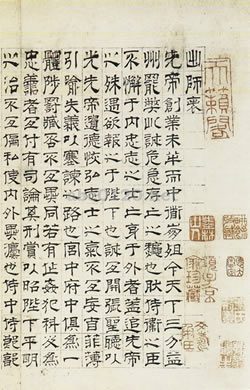 出師表
先帝創業未半而中道崩殂今天下三分益
州罷弊此誠危急存亡之秋也然侍衛之臣
不懈于内忠志之士亡身于外者蓋追先帝
之殊遇欲報之于陛下也誠宜開張聖聽以
光先帝遺德恢弘志士之氣不宜妄自菲薄
引喻失義以塞諫之路也宮中府中俱為一
體陟罰臧否不宜異同若有作姦犯科及為
忠善者宜付有司論其刑賞以昭陛下平明
之治不宜偏私使内外異法也侍中侍郎郭
天籟閣